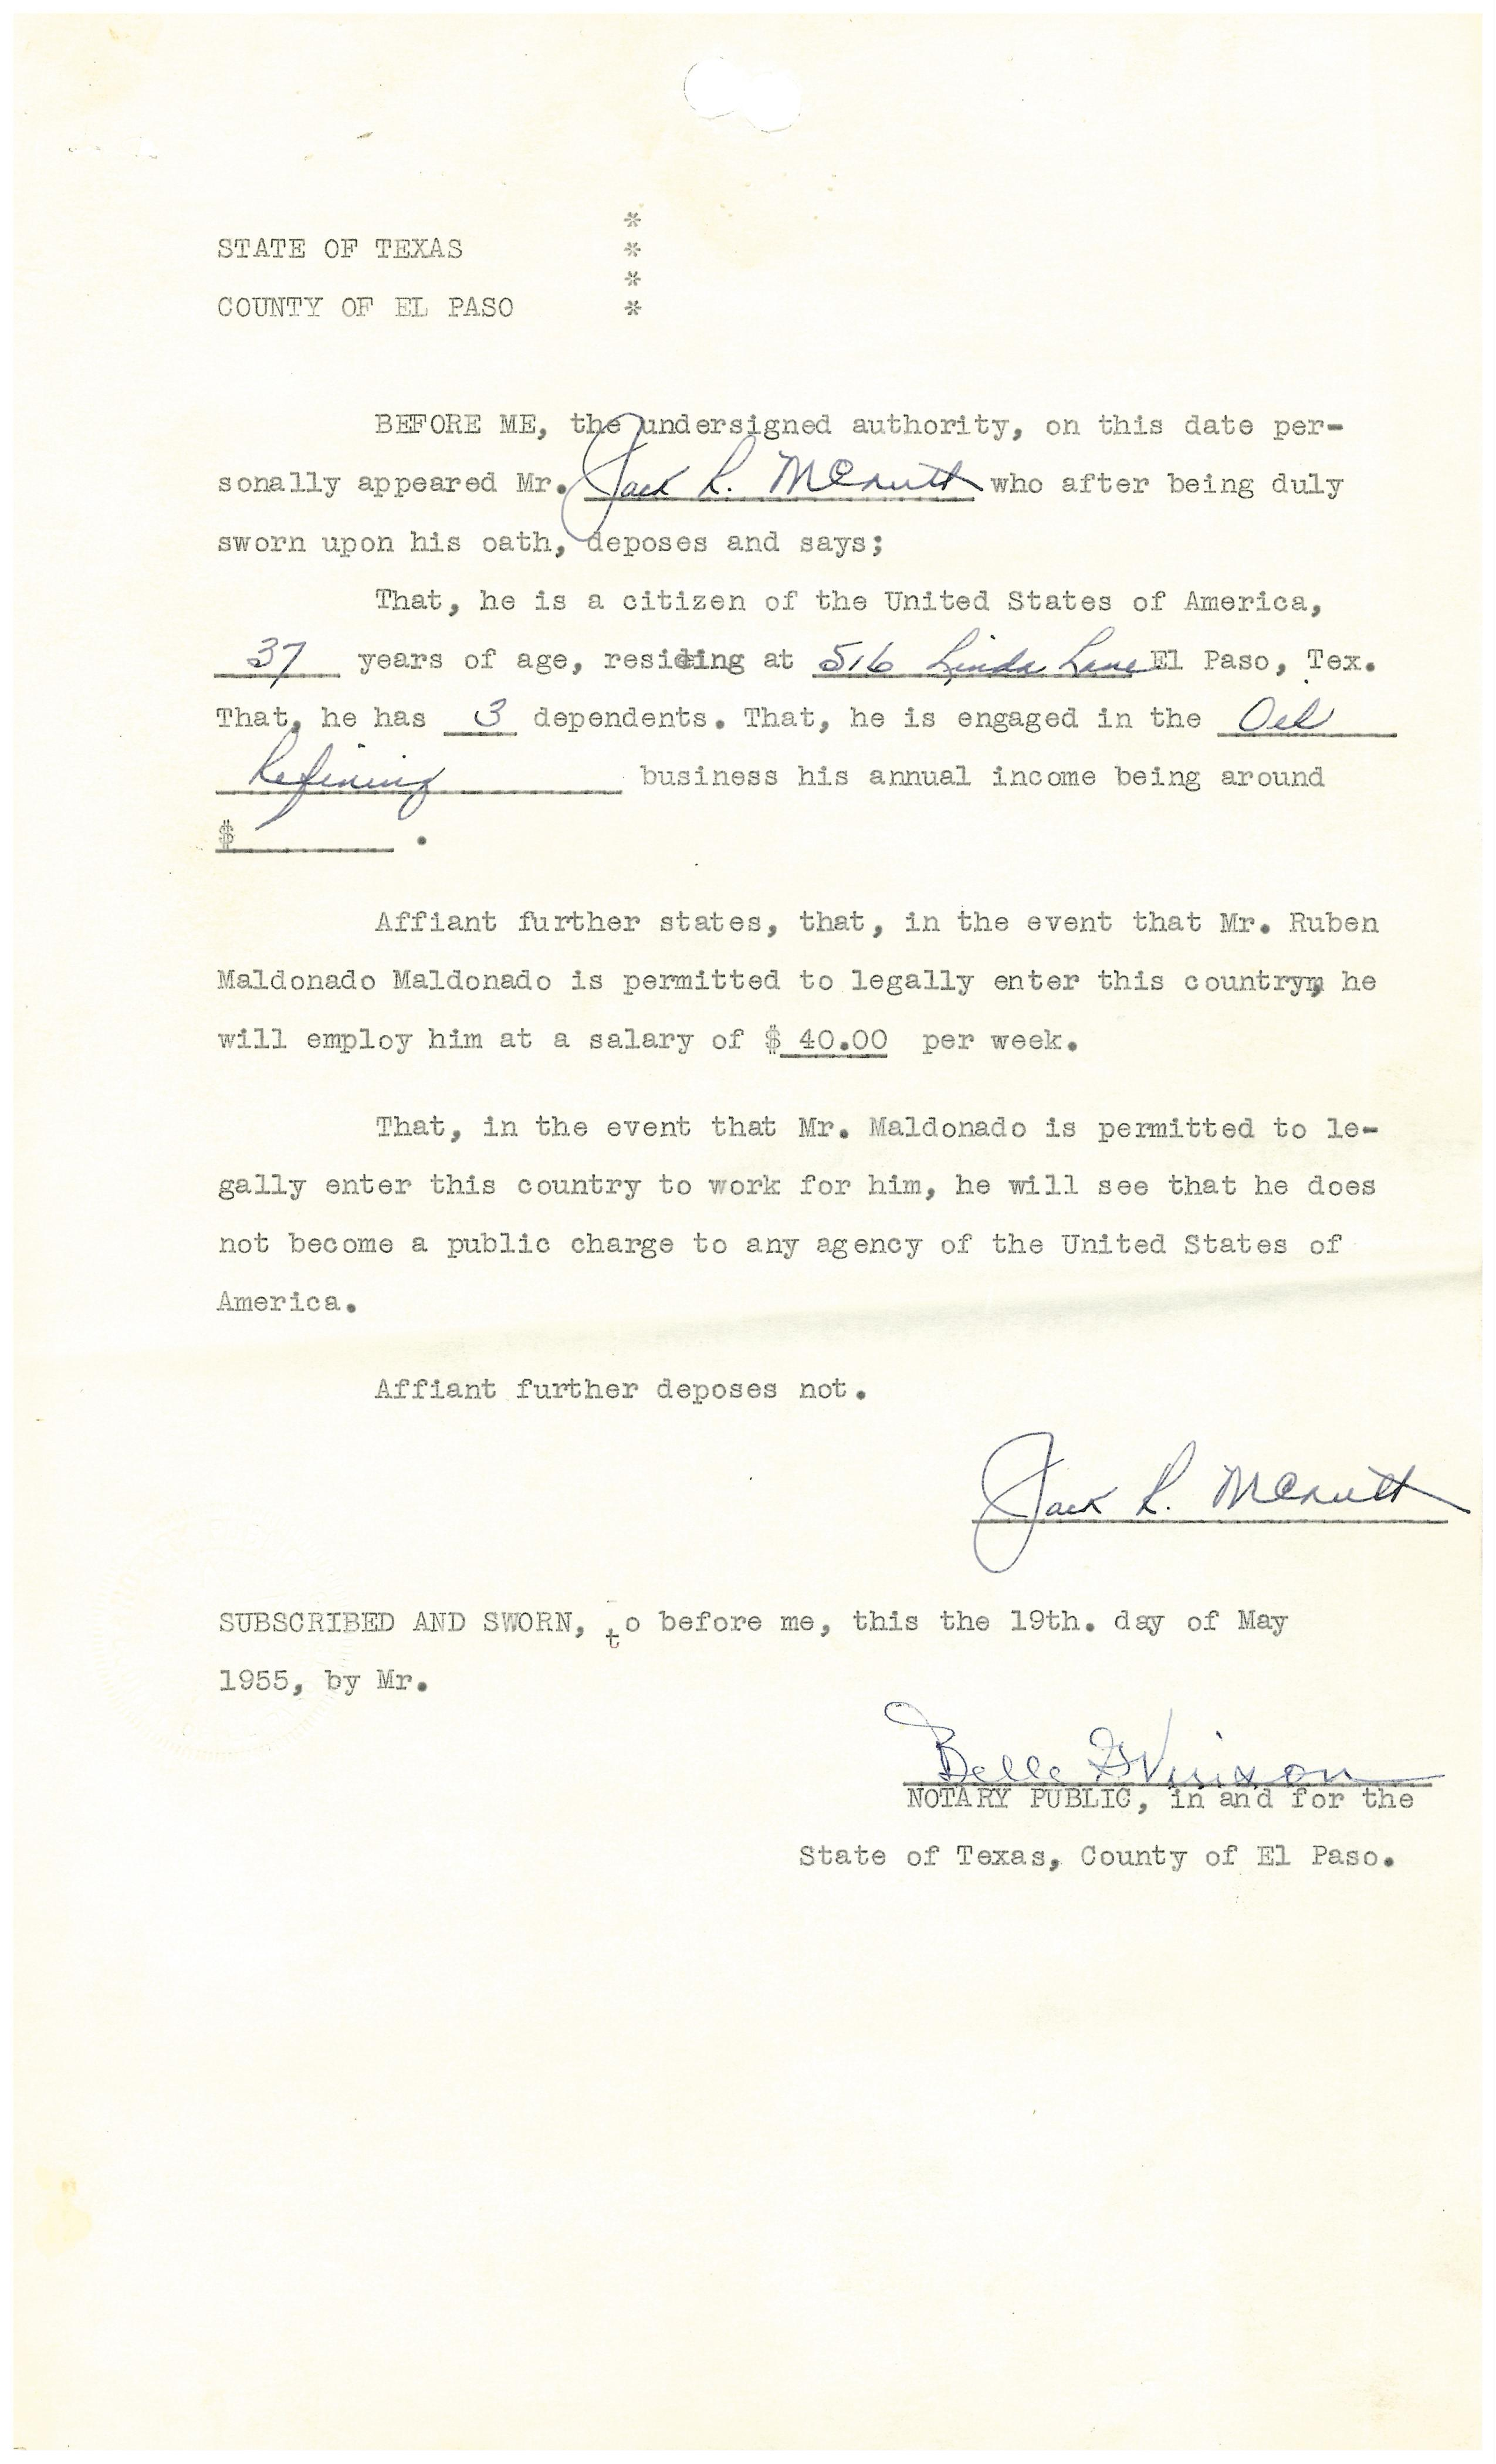 *
STATE OF TEXAS *
*
COUNTY OF EL PASO *
BEFORE ME, the undersigned authority, on this date per-
sonally appeared Mr. Jack R. McNutt who after being duly
sworn upon his oath, deposes and says;
That, he is a citizen of the United States of America,
37 years of age, residing at 516 Linda Lane El Paso, Tex.
That, he has 3 dependents. That, he is engaged in the Oil
Refining business his annual income being around
$ .
Affiant further states, that, in the event that Mr. Ruben
Maldonado Maldonado is permitted to legally enter this country, he
will employ him at a salary of $ 40.00 per week.
That, in the event that Mr. Maldonado is permitted to le-
gally enter this country to work for him, he will see that he does
not become a public charge to any agency of the United States of
America.
Affiant further deposes not.
Jack R. McNutt
SUBSCRIBED AND SWORN, to before me, this the 19th. day of May
1955, by Mr.
Belle
NOTARY PUBLIC, in and for the
State of Texas, County of El Paso.